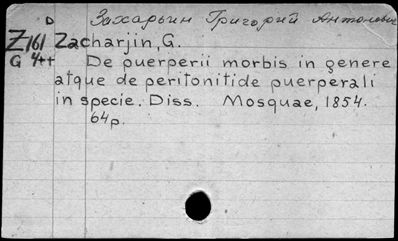 D Захарьин Григорий Антонович
Z161 Zacharjin, G.
G 4++ De puerperii morbis in genere
atque de peritonitide puerperali
in specie. Diss. Mosquae, 1854.
64p.